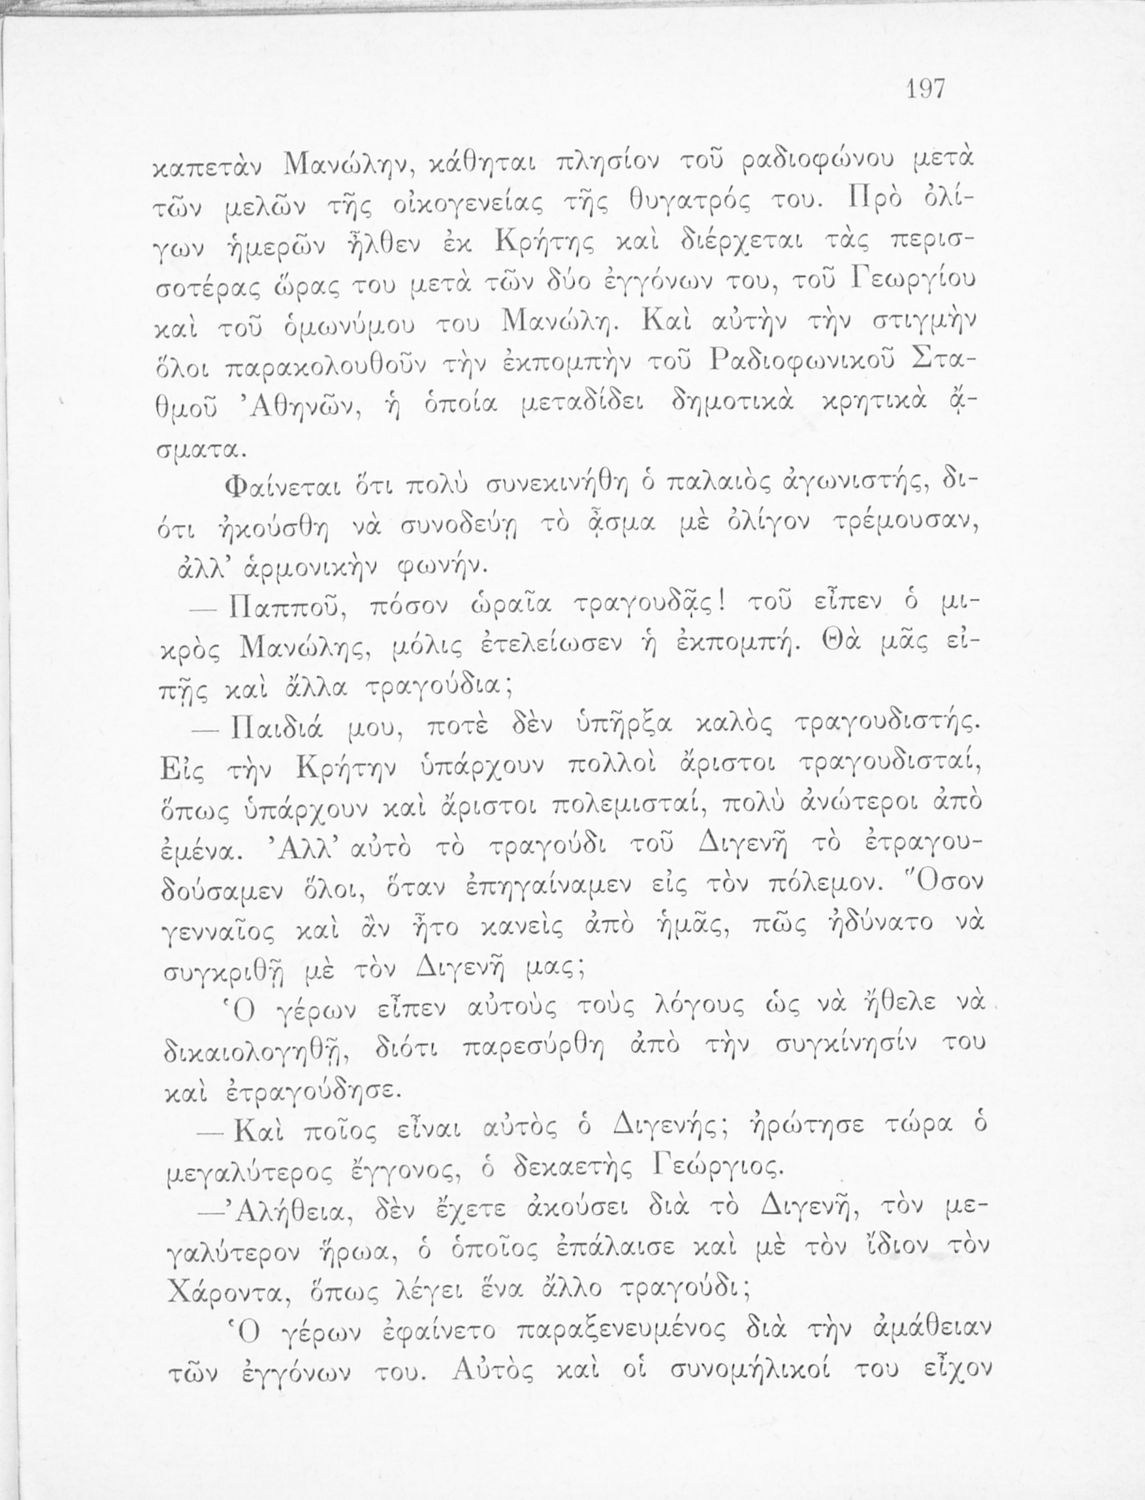 197
καπετὰν Μανώλην, κάθηται πλησίον τοῦ ραδιοφώνου μετὰ
τῶν μελῶν τῆς οἰκογενείας τῆς θυγατρός του. Πρὸ ὀλί-
γων ἡμερῶν ἦλθεν ἐκ Κρήτης καὶ διέρχεται τὰς περισ-
σοτέρας ὥρας του μετὰ τῶν δύο ἐγγόνων του, τοῦ Γεωργίου
καὶ τοῦ ὁμωνύμου του Μανώλη. Καὶ αὐτὴν τὴν στιγμὴν
ὅλοι παρακολουθοῦν τὴν ἐκπομπὴν τοῦ Ραδιοφωνικοῦ Στα-
θμοῦ Ἀθηνῶν, ἡ ὁποία μεταδίδει δημοτικὰ κρητικὰ ᾄ-
σματα.
Φαίνεται ὅτι πολὺ συνεκινήθη ὁ παλαιὸς ἀγωνιστής, δι-
ότι ἠκούσθη νὰ συνοδεύῃ τὸ ᾆσμα μὲ ὀλίγον τρέμουσαν,
ἀλλ’ ἁρμονικὴν φωνήν.
— Παπποῦ, πόσον ὡραῖα τραγουδᾷς! τοῦ εἶπεν ὁ μι-
κρὸς Μανώλης, μόλις ἐτελείωσεν ἡ ἐκπομπή. Θὰ μᾶς εἰ-
πῇς καὶ ἄλλα τραγούδια;
— Παιδιά μου, ποτὲ δὲν ὑπῆρξα καλὸς τραγουδιστής.
Εἰς τὴν Κρήτην ὑπάρχουν πολλοὶ ἄριστοι τραγουδισταί,
ὅπως ὑπάρχουν καὶ ἄριστοι πολεμισταί, πολὺ ἀνώτεροι ἀπὸ
ἐμένα. Ἀλλ’ αὐτὸ τὸ τραγούδι τοῦ Διγενῆ τὸ ἐτραγου-
δούσαμεν ὅλοι, ὅταν ἐπηγαίναμεν εἰς τὸν πόλεμον. Ὅσον
γενναῖος καὶ ἂν ἦτο κανεὶς ἀπὸ ἡμᾶς, πῶς ἠδύνατο νὰ
συγκριθῇ μὲ τὸν Διγενῆ μας;
Ὁ γέρων εἶπεν αὐτοὺς τοὺς λόγους ὡς νὰ ἤθελε νὰ
δικαιολογηθῇ, διότι παρεσύρθη ἀπὸ τὴν συγκίνησίν του
καὶ ἐτραγούδησε.
— Καὶ ποῖος εἶναι αὐτὸς ὁ Διγενής; ἠρώτησε τώρα ὁ
μεγαλύτερος ἔγγονος, ὁ δεκαετὴς Γεώργιος.
—Ἀλήθεια, δὲν ἔχετε ἀκούσει διὰ τὸ Διγενῆ, τὸν με-
γαλύτερον ἥρωα, ὁ ὁποῖος ἐπάλαισε καὶ μὲ τὸν ἴδιον τὸν
Χάροντα, ὅπως λέγει ἕνα ἄλλο τραγούδι;
Ὁ γέρων ἐφαίνετο παραξενευμένος διὰ τὴν ἀμάθειαν
τῶν ἐγγόνων του. Αὐτὸς καὶ οἱ συνομήλικοί του εἶχον